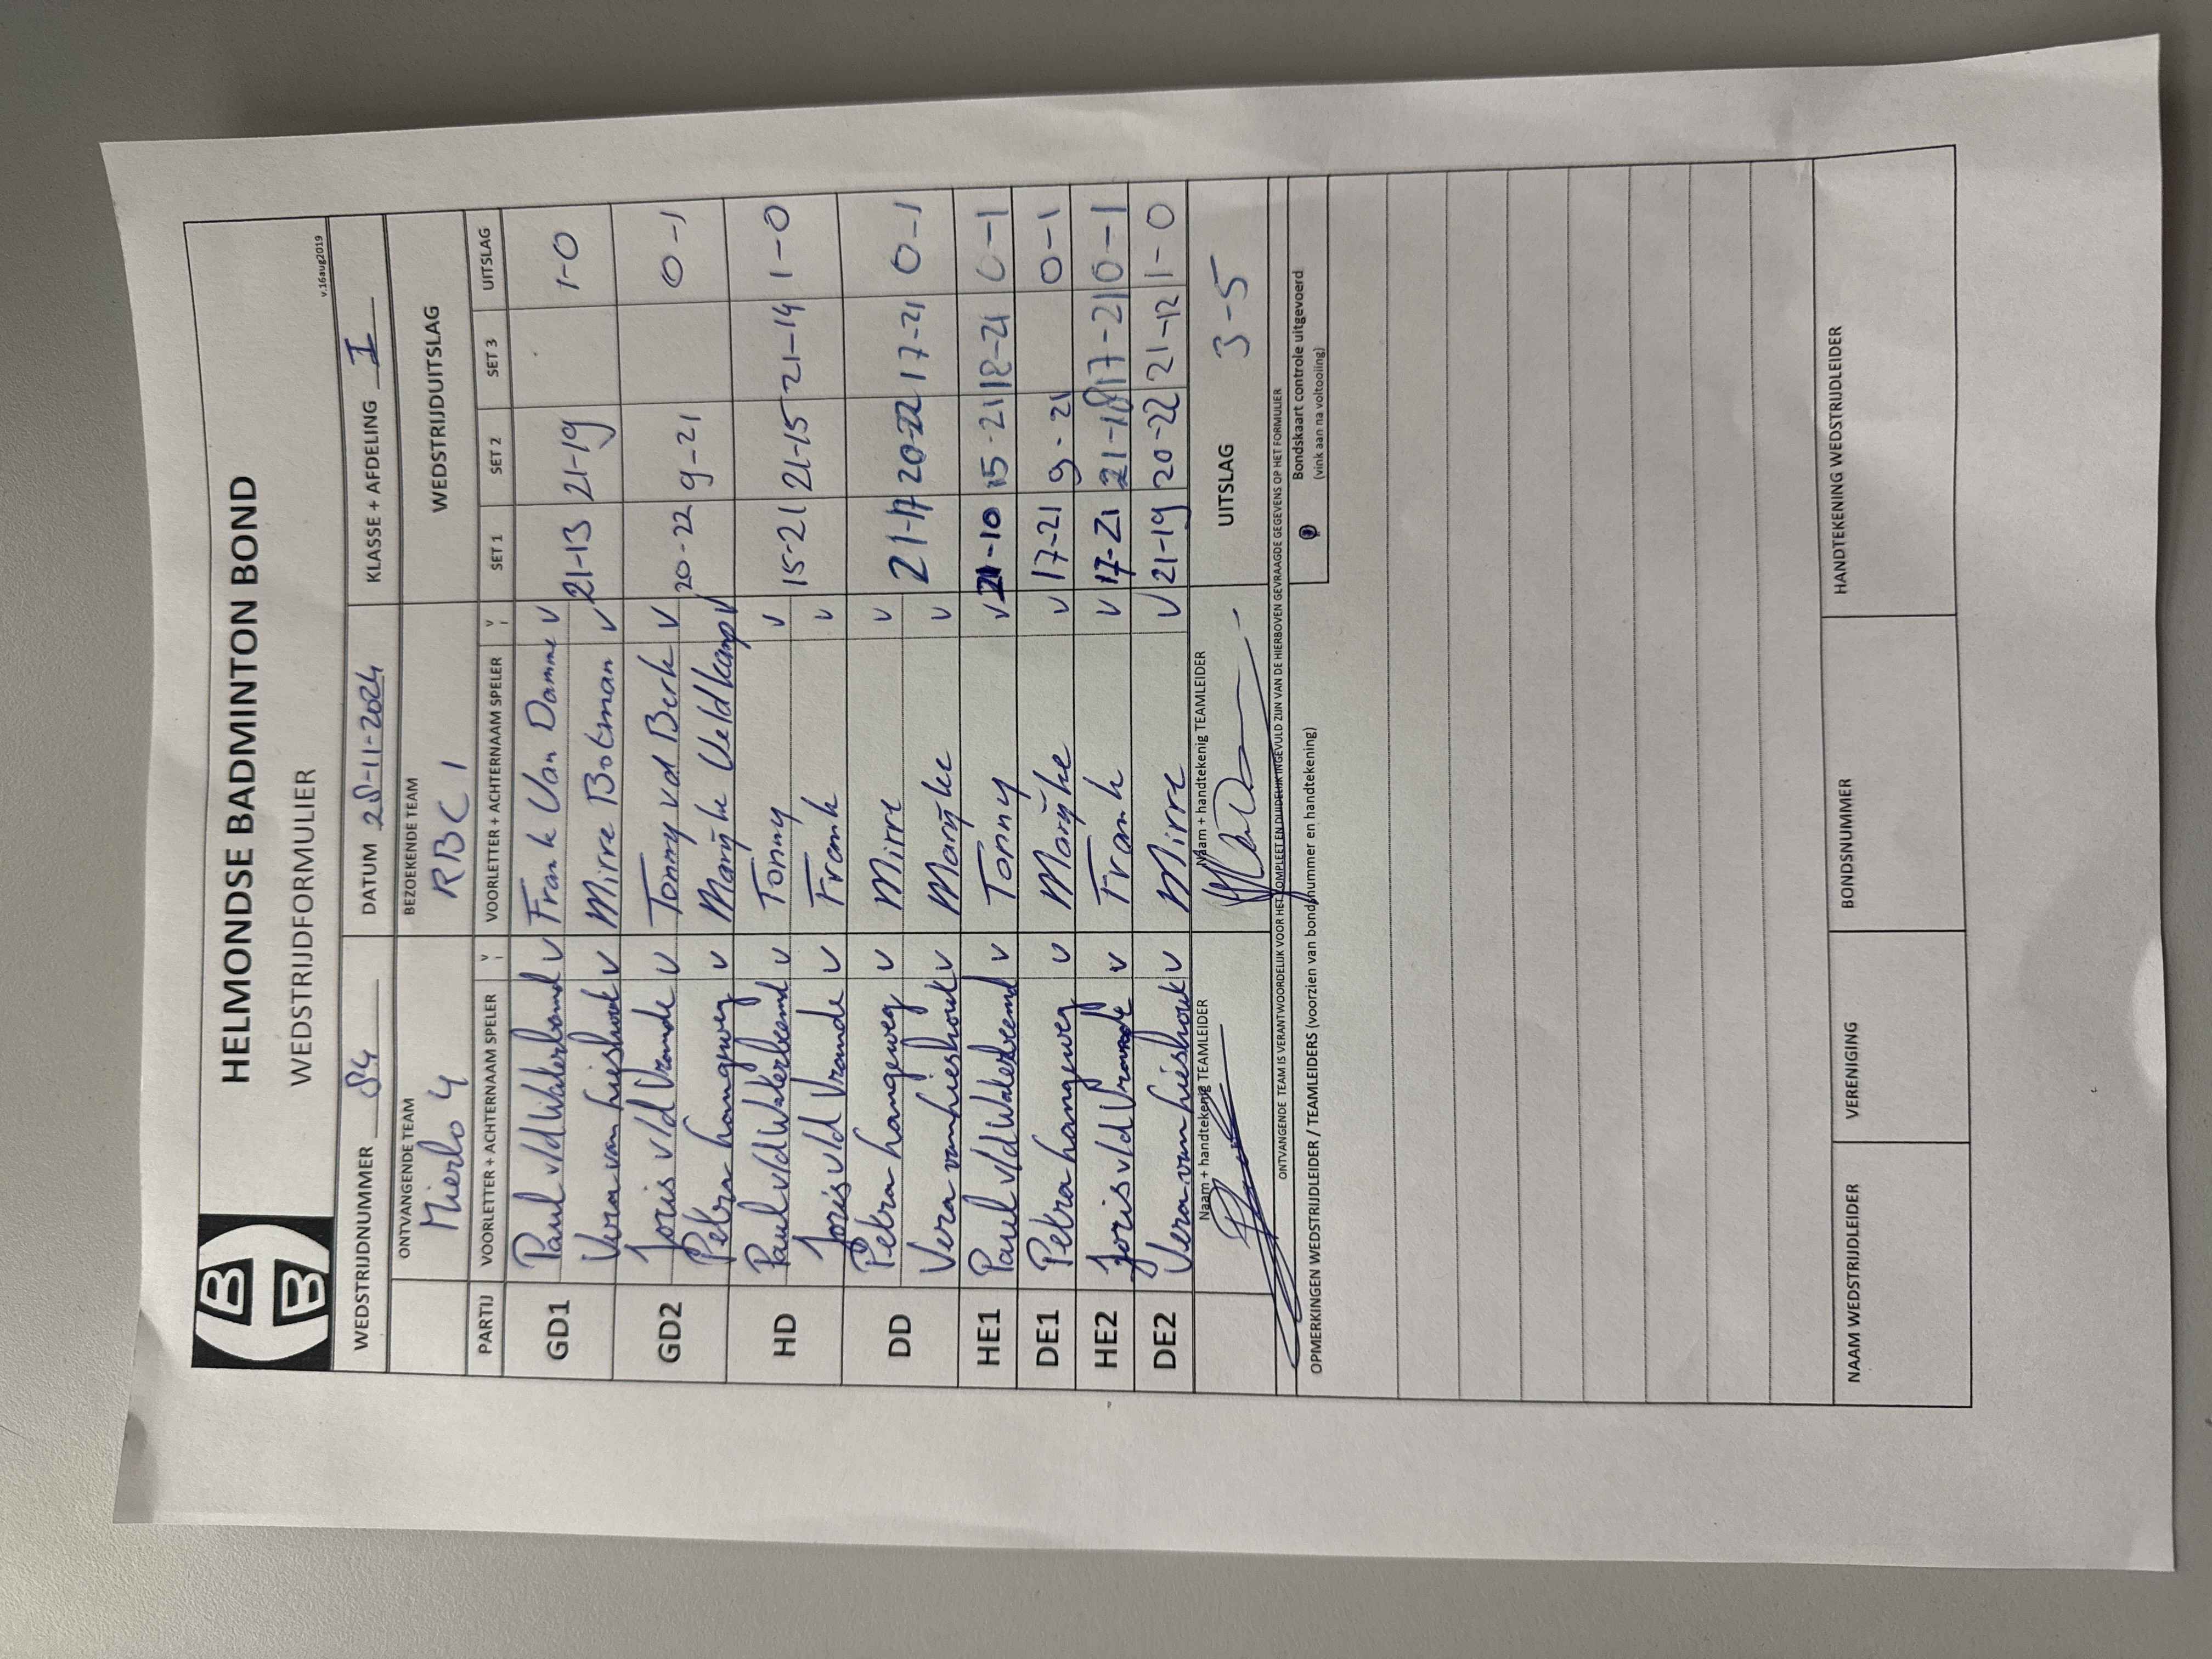 HELMONDSE BADMINTON BOND
WEDSTRIJDFORMULIER
v.16aug2019
WEDSTRIJDNUMMER 84 DATUM 28-11-2024 KLASSE + AFDELING I
ONTVANGENDE TEAM BEZOEKENDE TEAM WEDSTRIJDUITSLAG
Mierlo 4 RBC 1
PARTIJ VOORLETTER + ACHTERNAAM SPELER V VOORLETTER + ACHTERNAAM SPELER V SET 1 SET 2 SET 3 UITSLAG
GD1 Paul v/d Waterbeemd v Frank Van Damme v
Vera van Lieshout v Mirre Botman v 21-13 21-19 1-0
GD2 Joris v/d Vrande v Tonny vd Berk v
Petra Hoangeweg v Marijke Veldkamp v 20-22 9-21 0-1
HD Paul v/d Waterbeemd v Tonny v
Joris v/d Vrande v Frank v 15-21 21-15 21-14 1-0
DD Petra Hoangeweg v Mirre v
Vera van Lieshout v Marijke v 21-17 20-22 17-21 0-1
HE1 Paul v/d Waterbeemd v Tonny v 21-10 15-21 18-21 0-1
DE1 Petra Hoangeweg v Marijke v 17-21 9-21 0-1
HE2 Joris v/d Vrande v Frank v 17-21 21-18 17-21 0-1
DE2 Vera van Lieshout v Mirre v 21-19 20-22 21-12 1-0
Naam + handtekenig TEAMLEIDER Naam + handtekenig TEAMLEIDER UITSLAG 3-5
ONTVANGENDE TEAM IS VERANTWOORDELIJK VOOR HET COMPLEET EN DUIDELIJK INGEVULD ZIJN VAN DE HIERBOVEN GEVRAAGDE GEGEVENS OP HET FORMULIER
OPMERKINGEN WEDSTRIJDLEIDER / TEAMLEIDERS (voorzien van bondsnummer en handtekening)
Bondskaart controle uitgevoerd
(vink aan na voltooling)
NAAM WEDSTRIJDLEIDER VERENIGING BONDSNUMMER HANDTEKENING WEDSTRIJDLEIDER